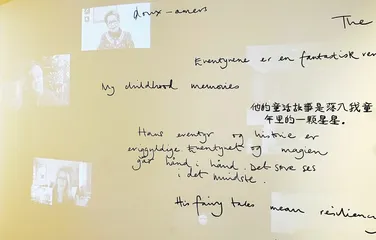 doux-amers
The
Eventyrene er en fantastisk
My childhood memories
他的童话故事是落入我童
年里的一颗星星。
Hans eventyr og historie er
Eventyret og magien
går hånd i hånd. Det
i det mindste.
His fairy tales mean resilienc